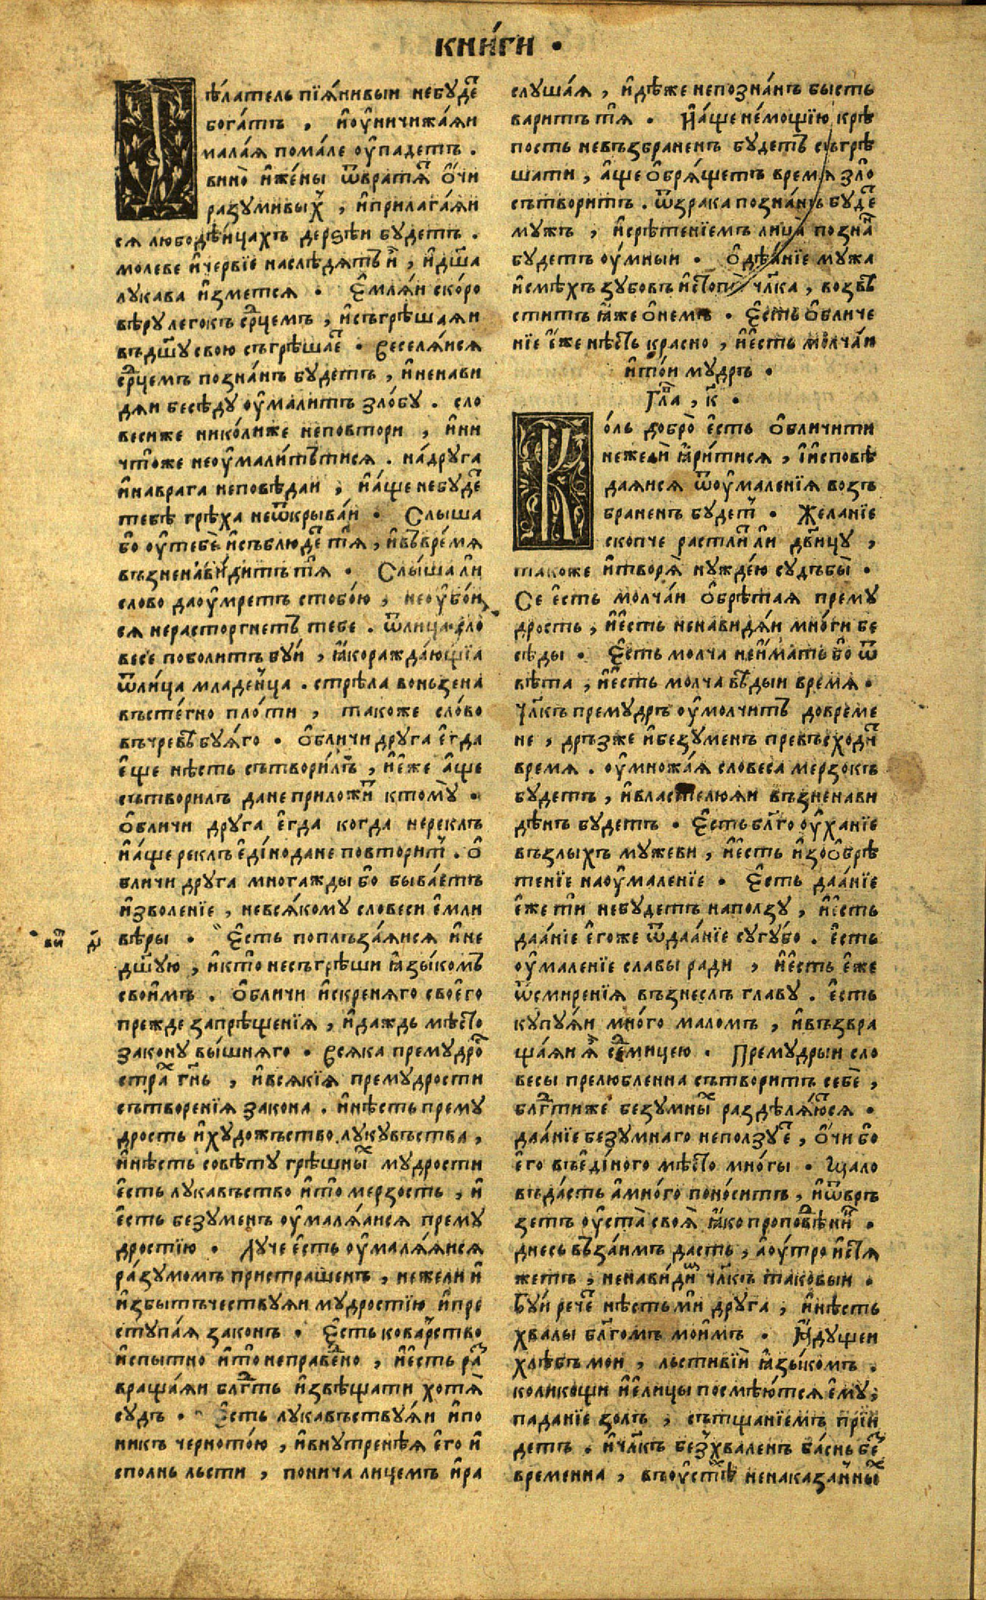 КНИ́ГИ ·
Дѣ́латель пїѧ́нивыи небу́де҇
бога́тъ , и҆оу҆ничижа́ѧи
мала́ѧ пома́ле оу҆паде́тъ .
вино̀ и҆же́ны ѿврата́тъ о҆́чи
разу́мивых̾ , и҆прилага́ѧи
сѧ любодѣ́ицахъ дерзѣи бу́детъ .
молеве и҆че́рвїе наслѣ́дѧтъ и҆̀ , и҆дш҃а
лука́ва и҆́зметсѧ · Е҆́млѧи ско́ро
вѣ́ру лего́къ ср҃цемъ , и҆съгрѣша́ѧи
въдш҃у свою съгрѣша́е · Веселѧ́исѧ
ср҃цемъ позна́нъ бу́детъ , и҆ненави
дѧи бесѣ́ду оу҆мали́тъ зло́бу . сло
весиже нико́лиже неповтори , и҆ни
что́же неоу҆мали́тътисѧ . на́друга
и҆наврага неповѣ́даи , и҆а҆́ще небу́де҇
тебѣ̀ грѣха неѿкрыва́и · Слыша
бо оу҆тебѐ и҆съблюде́ тѧ , и҆въвре́мѧ
възненави́дитъ тѧ̀ · Слы́ша ли
слово даоу҆мретъ стобо́ю , неоу҆бо́и
сѧ нерасторгнетъ тебе . ѿлица̀ сло
весе поболи́тъ буи , ꙗ҆́кораждаю́щїа
ѿли́ца младе́нца . стрѣла воньзе́на
въсте́гно пло́ти , такоже сло́во
въчревѣ буꙗ́го · О҆бличи дру́га е҆гда
е҆ще нѣсть сътвори́лъ , и҆е҆же а҆ще
сътвори́лъ дане приложи́т ктому̀ .
О҆бличи друга е҆гда когда нерекл̀ъ
и҆а҆́ще реклъ е҆ди́нодане повтори́т . О҆
бличи друга многа́жды бо быва́етъ
и҆зволе́нїе , невсѧ́кому словеси е҆мли
вѣры · Е҆сть поплъза́ѧисѧ и҆не
дш҃ею , и҆кто несъгрѣши ꙗ҆зы́комъ
свои́мъ . О҆бличи и҆скренѧго свое́го
прежде запреще́нїѧ , и҆даждь мѣ́сто
закону вы́шнѧго · Всѧка премудро҇
страⷯ гн҃ь , и҆всѧкїѧ премудрости
сътворенїѧ закона . и҆нѣсть прему
дрость и҆худо́жъство лука́въства ,
и҆нѣсть совѣ́ту грѣшныⷯ мудрости
е҆сть лука́въство и҆то̀ мерзость , и҆
е҆сть безуменъ оу҆малѧ́ѧисѧ прему
дростїю · Луче е҆сть оу҆малѧ́ѧисѧ
ра́зумомъ пристрашенъ , нежели и҆
и҆збытъчествуѧи мудростїю и҆пре
ступа́ѧ законъ · Е҆сть кова́рство
и҆спытно и҆то̀ непраⷡ҇едно , и҆е҆сть раⷥ
враща́ѧи бл҃гть и҆звѣща́ти хотѧ̀
судъ · Е҆сть лука́въствуѧи и҆по
никъ черното́ю , и҆внутренѣѧ е҆го и҆
сполнь льсти , понича лицемъ и҆ра
вⷩ҇и д҃
слушаѧ , и҆дѣ́же непозна́нъ бысть
вари́тъ тѧ . И҆а҆ще не́мощїю крѣ
пость невъзбраненъ будетъ съгрѣ
шати , а҆́ще о҆брѧ́щетъ времѧ зло
сътворитъ . ѿзрака позна́нъ бу́де҇
мужъ , и҆срѣ́тенїемъ лица̀ позна̾
будетъ оу҆мныи · О҆дѣѧ́нїе му́жа
и҆смѣ́хъ зубо́въ и҆стопы̀ чл҃ка , возвѣ
стѧтъ ꙗ҆́же о҆не́мъ · Е҆сть о҆бличе
нїе е҆́же нѣсть кра́сно , и҆е҆́сть молча́и
и҆то́и мудръ ·
Гла , к҃ ·
Коль добро̀ е҆сть о҆бличи́ти
нежели ꙗ҆рити́сѧ , и҆и҆сповѣ
даѧисѧ ѿоу҆маленїѧ возъ
браненъ будет · Желанїе
скопче растли́ли дв҃ицу ,
такоже и҆творѧ̀ нужде́ю судъбы̀ .
Се е҆сть молча́и о҆брѣ́таѧ прему
дрость , и҆е҆сть ненави́дѧи мно́ги бе
сѣ́ды · Е҆сть молча неи҆мать бо ѿ
вѣта , и҆е҆сть молча вѣдыи времѧ .
Чл҃къ премудръ оу҆молчи́тъ довреме
не , дръзже и҆безуменъ превъсходит
времѧ . оу҆множа́ѧ словеса̀ мерзокъ
будетъ , и҆властелю́ѧи възненави
дѣнъ будетъ · Е҆сть бл҃го оу҆ха́нїе
възлыхъ мужеви , и҆е҆сть и҆зоо҆брѣ
тенїе наоу҆маленїе · Е҆сть даѧ́нїе
е҆же ти небудетъ напо́лзу , и҆е҆сть
даѧ́нїе е҆гоже ѿдаѧ́нїе сугубо . е҆сть
оу҆маленїе славы ради , и҆е҆сть е҆же
ѿсмиренїѧ възнеслъ главу . е҆сть
купуѧи мно́го маломъ , и҆възвра
щаѧи ѧ҆̀ седмицею . Премудрыи сло
весы прелюбленна сътворитъ себѐ ,
бл҃гтиже безумныⷯ раздѣлѧ́ютсѧ .
даѧ́нїе безумнаго неползуе , о҆́чи бо
е҆го въе҆ди́ного мѣ́сто мно́гы · Мало
въда́сть а҆мно́го поно́ситъ , и҆ѿвръ
зетъ оу҆ста̀ своѧ̀ ꙗ҆́ко проповѣ́дни .
днесь въза́имъ да́сть , а҆оу҆тро и҆стѧ
жетъ , ненави́дим чл҃къ таковыи .
Буи рече нѣсть ми друга , и҆нѣсть
хвалы бл҃гомъ мои́мъ . И҆ꙗдущеи
хлѣ́бъ мои , льстиви́и ꙗ҆зы́комъ .
коликощи и҆е҆ли́цы посмѣю́тсѧ е҆му̀ ;
паданїе золъ , сътща́нїемъ прїи
детъ . и҆чл҃къ безхваленъ баснь без
временна , въоу҆стѣⷯ ненаказа́нныⷯ